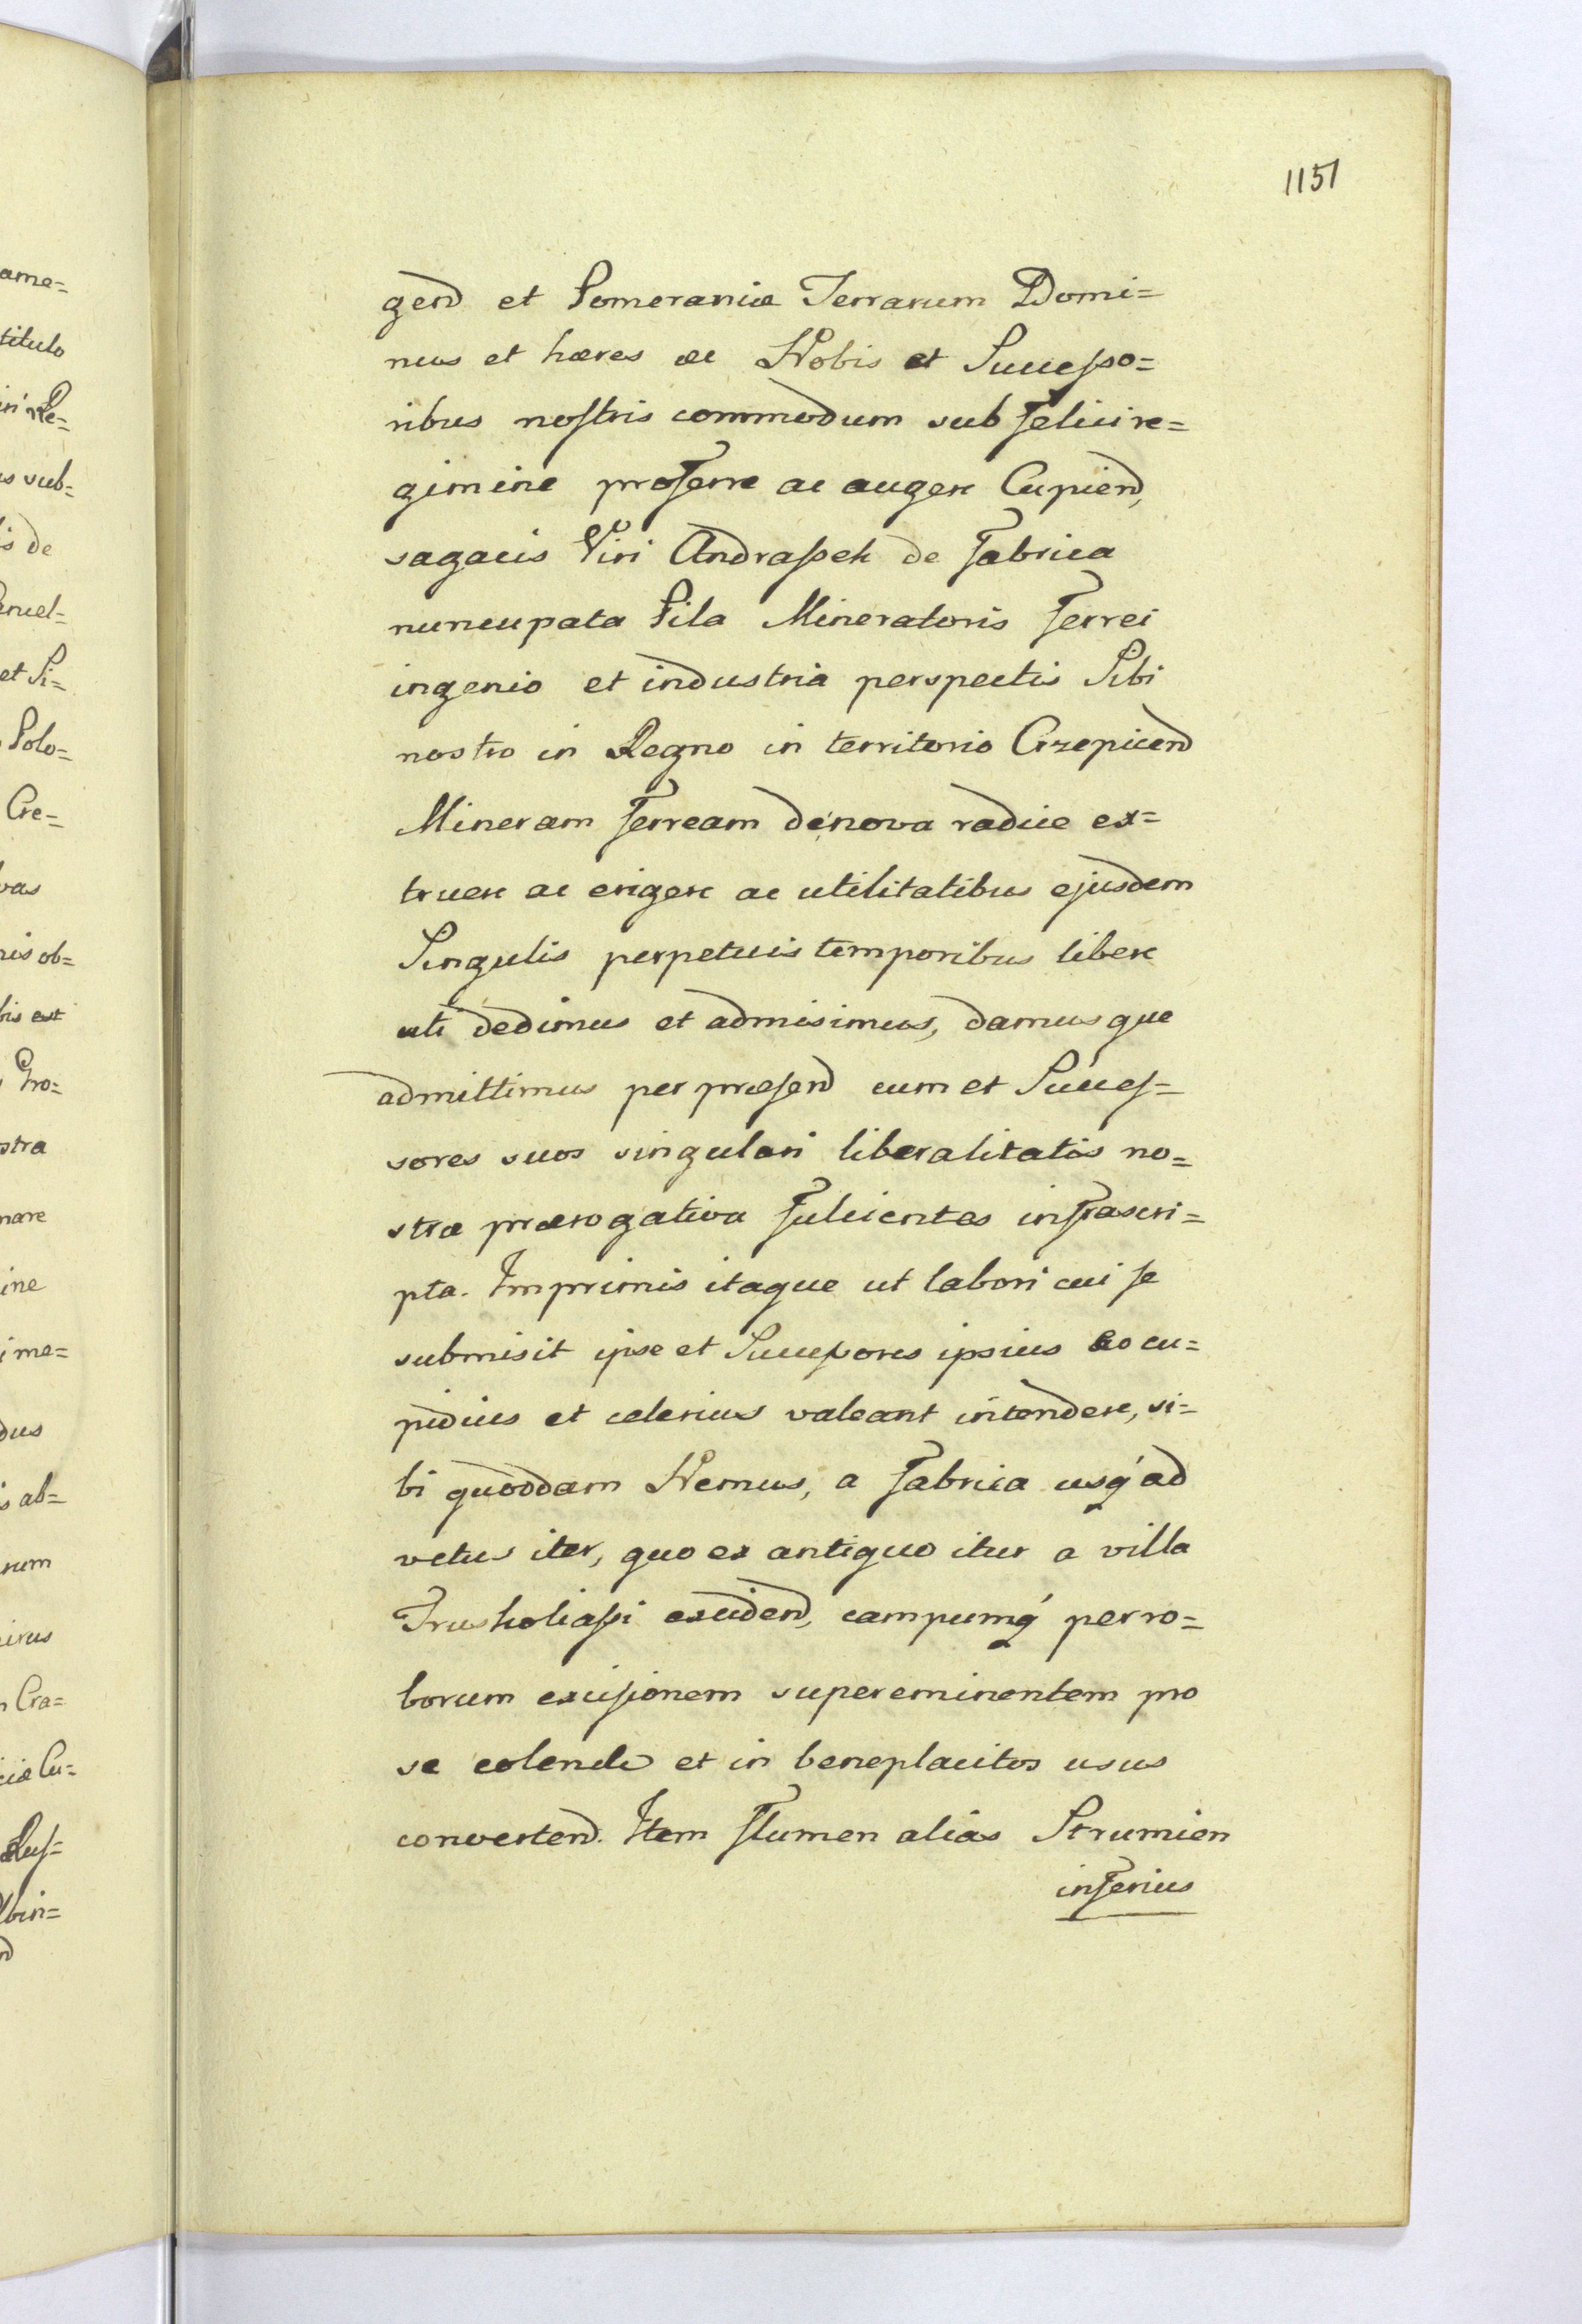 1151
ame=
titulo
iri Re=
is sub=
is de
et Si=
Polo=
Cre=
vas
nis ob=
bis est
Pro=
stra
nare
ine
i me=
dus
s ab=
num
irus
Cra=
ciæ Cu=
Rus=
gend et Pomeraniæ Terrarum Domi=
nus et hæres ac Nobis et Successo=
ribus nostris commodum sub felici re=
gimine proferre ac augere Cupiend,
sagacis Viri Andraßek de Fabrica
nuncupata Pila Mineratoris Ferrei
ingenio et industria perspectis Sibi
nostro in Regno in territorio Crzepicend
Mineram ferream de nova radice ex=
truere ac erigere ac utilitatibus ejusdem
Singulis perpetuis temporibus libere
uti dedimus et admisimus, damusque
admittimus per præsend eum et Succes=
sores suos singulari liberalitatis no=
stræ prærogativa fulcientes infrascri=
pta. Imprimis itaque ut labori cui se
submisit ipse et Successores ipsius eo cu=
pidius et celerius valeant intendere, si=
bi quoddam Nemus, a Fabrica usq́ ad
vetus iter, quo ex antiquo itur a villa
Truskoliaßi excidend, campumq́ per ro=
borum excisionem supereminentem pro
se colend et in beneplacitos usus
convertend. Item flumen alias Strumien
inferius